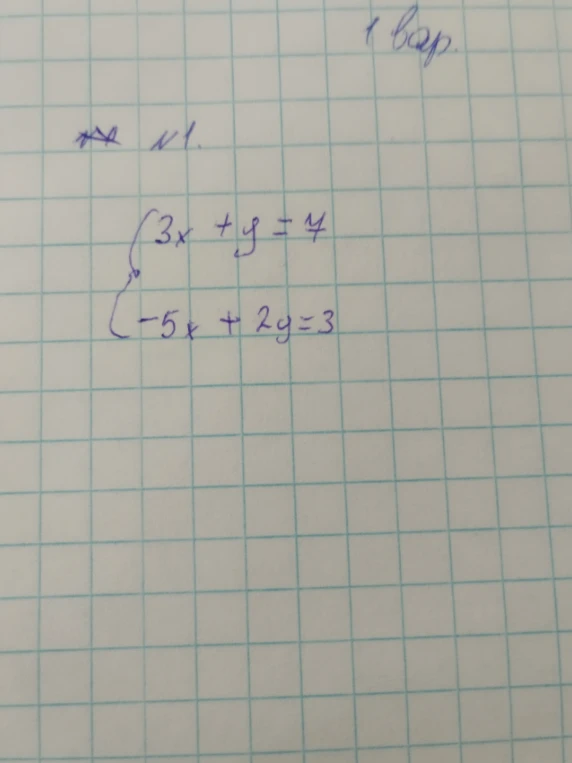 1 вар.
№1.
3x + y = 7
-5x + 2y = 3